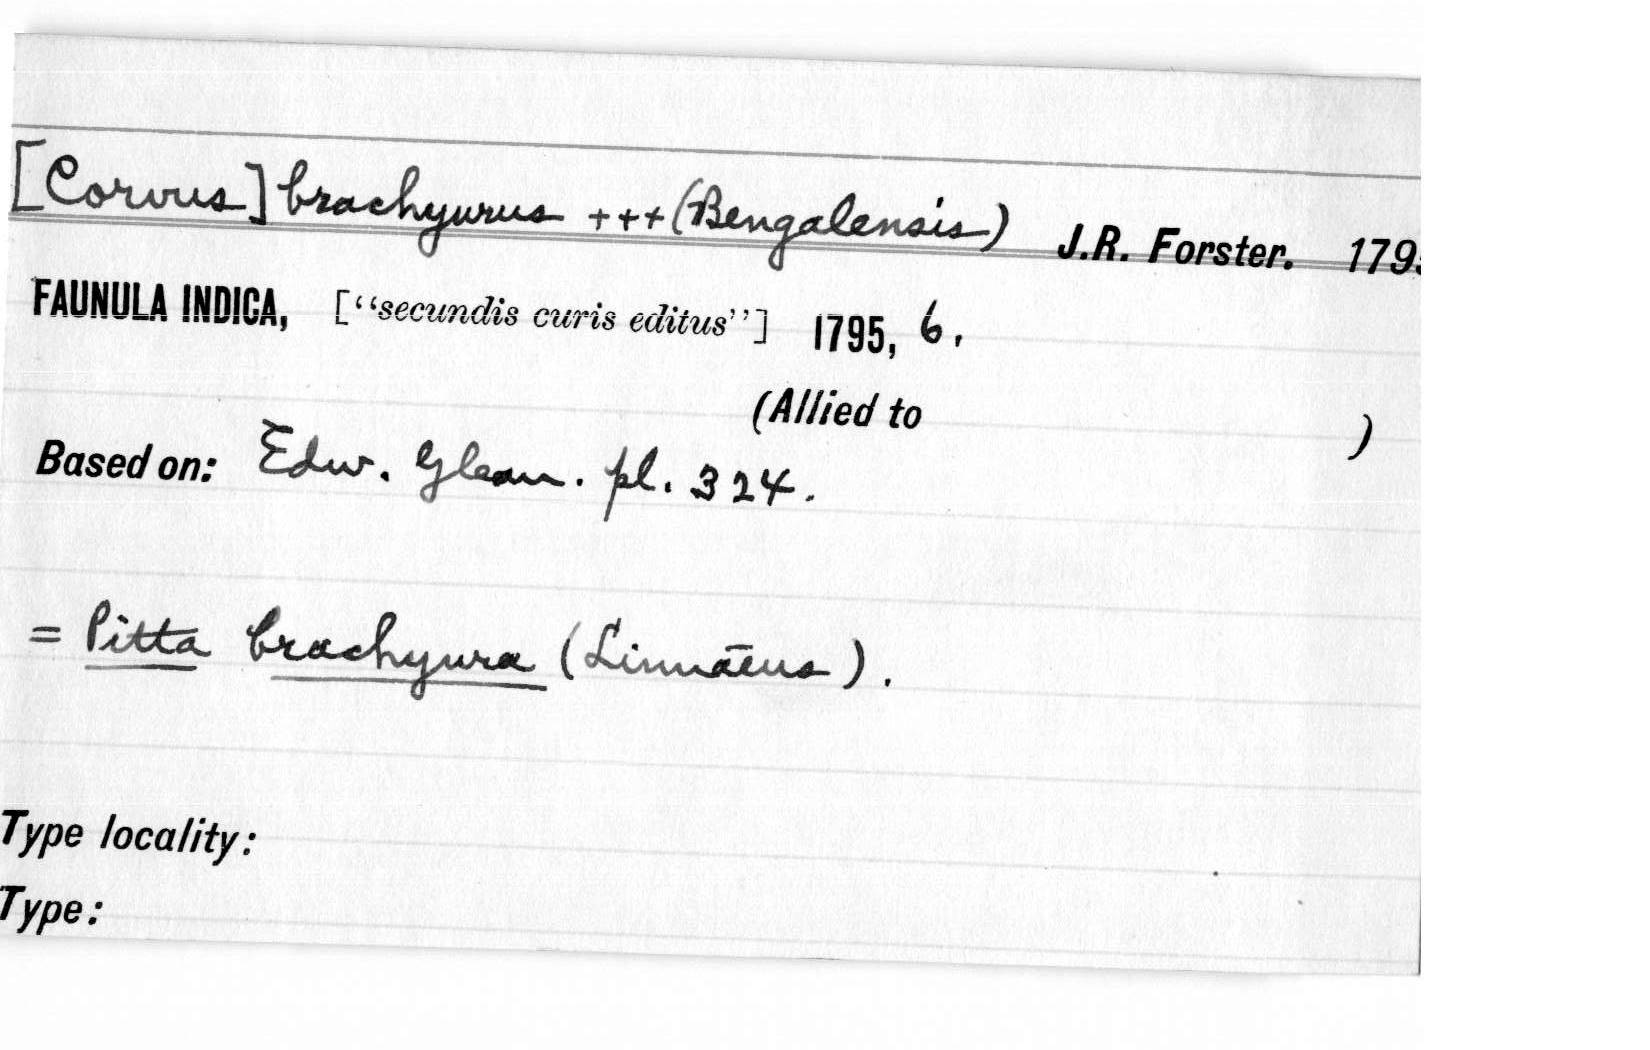 [Corvus] brachyurus +++ (Bengalensis) J.R. Forster. 179
FAUNULA INDICA, [“secundis curis editus”] 1795, 6.
(Allied to )
Based on: Edw. Glean. pl. 324.
= Pitta brachyura (Linnaeus).
Type locality:
Type: